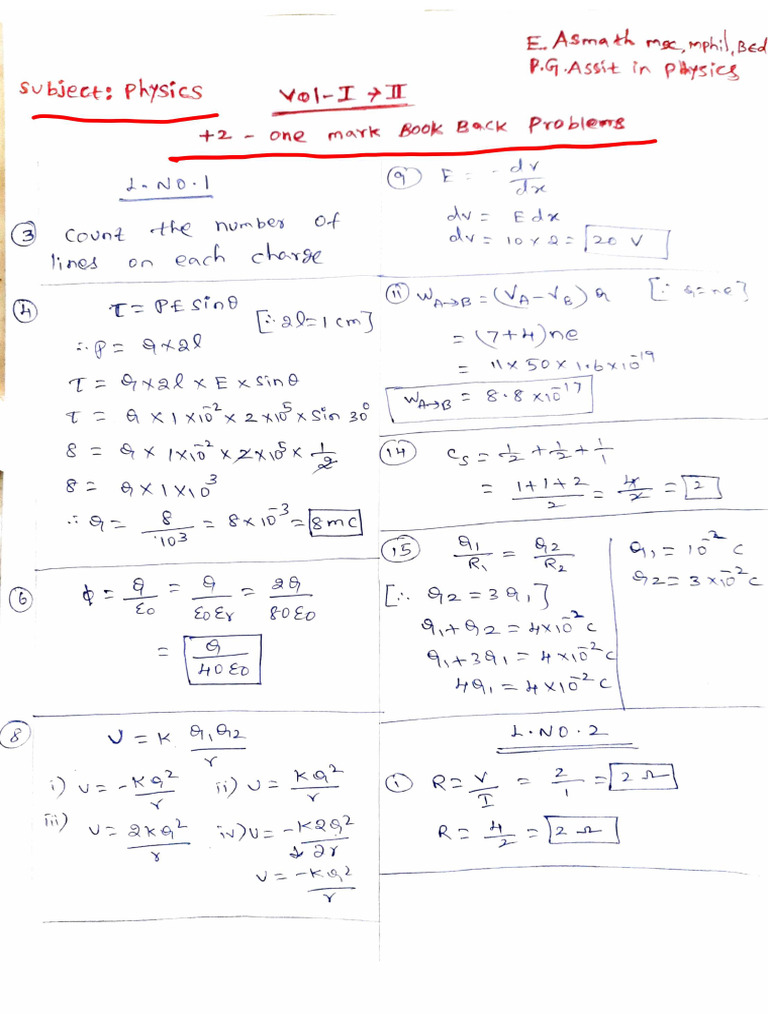 E. Asmath msc, mphil, Bed
P.G. Assit in Physics
Subject: Physics
Vol-I → II
+2 - one mark Book Back Problems
L.NO.1
③ Count the number of
lines on each charge
④ τ = PE sinθ
∴ P = q×2l [∵ 2l = 1 cm]
τ = q×2l × E × sinθ
τ = q × 1×10⁻² × 2×10⁵ × sin 30⁰
8 = q × 1×10⁻² × 2×10⁵ × 1/2
8 = q × 1×10³
∴ q = 8/10³ = 8×10⁻³ = 8mc
⑥ ϕ = q/ε0 = q/ε0εr = 2q/80ε0
= q/40ε0
⑧ U = K q1q2/r
i) U = -Kq²/r ii) U = Kq²/r
iii) U = 2Kq²/r iv) U = -K2q²/2r
U = -Kq²/r
⑨ E = - dv/dx
dv = E dx
dv = 10 × 2 = 20 V
⑪ WA→B = (VA - VB) q [∵ q = ne]
= (7+4)ne
= 11 × 50 × 1.6×10⁻¹⁹
WA→B = 8.8×10⁻¹⁷
⑭ Cs = 1/2 + 1/2 + 1/1
= 1+1+2/2 = 4/2 = 2
⑮ q1/R1 = q2/R2
[∵ q2 = 3q1]
q1+q2 = 4×10⁻² C
q1+3q1 = 4×10⁻² C
4q1 = 4×10⁻² C
q1 = 10⁻² C
q2 = 3×10⁻² C
L.NO.2
① R = V/I = 2/1 = 2 Ω
R = 4/2 = 2 Ω